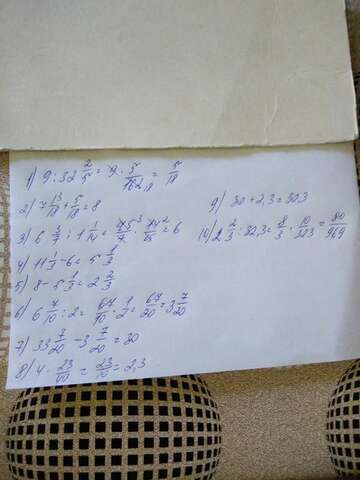 1) 9 : 32 2/5 = 9 · 5/162 18 = 5/18
2) 7 13/18 + 5/18 = 8
3) 6 3/7 : 1 1/14 = 45 3/7 · 14 2/15 = 6
4) 11 1/3 - 6 = 5 1/3
5) 8 - 5 1/3 = 2 2/3
6) 6 7/10 : 2 = 67/10 · 1/2 = 67/20 = 3 7/20
7) 33 7/20 - 3 7/20 = 30
8) 4 · 23/40 = 23/10 = 2,3
9) 30 + 2,3 = 30,3
10) 2 2/3 : 32,3 = 8/3 · 10/323 = 80/969